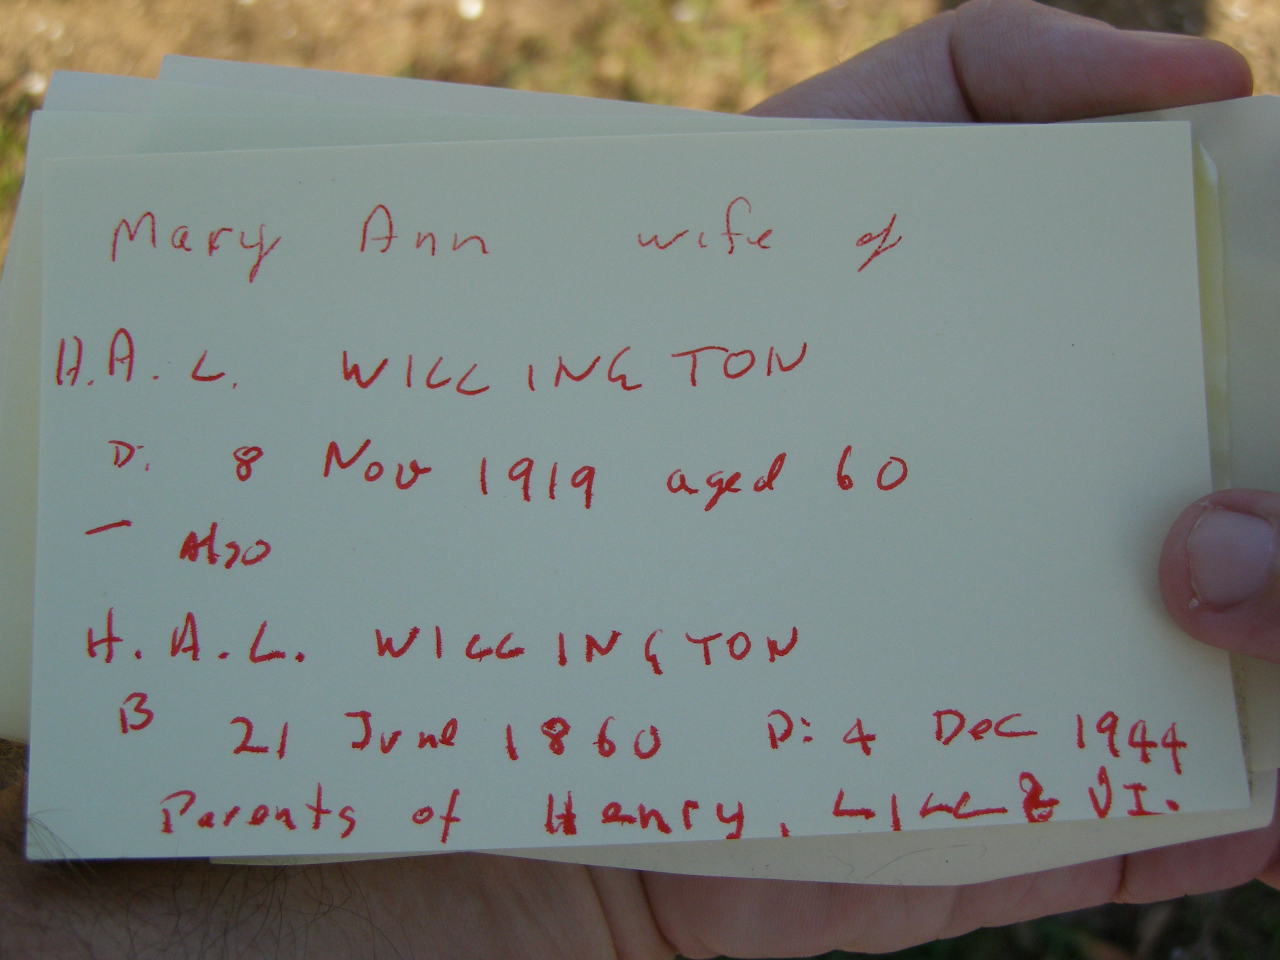 Mary Ann wife of
H.A.L. WILLINGTON
D: 8 Nov 1919 aged 60
- Also
H.A.L. WILLINGTON
B 21 June 1860 D: 4 Dec 1944
Parents of Henry, LILL & VI.